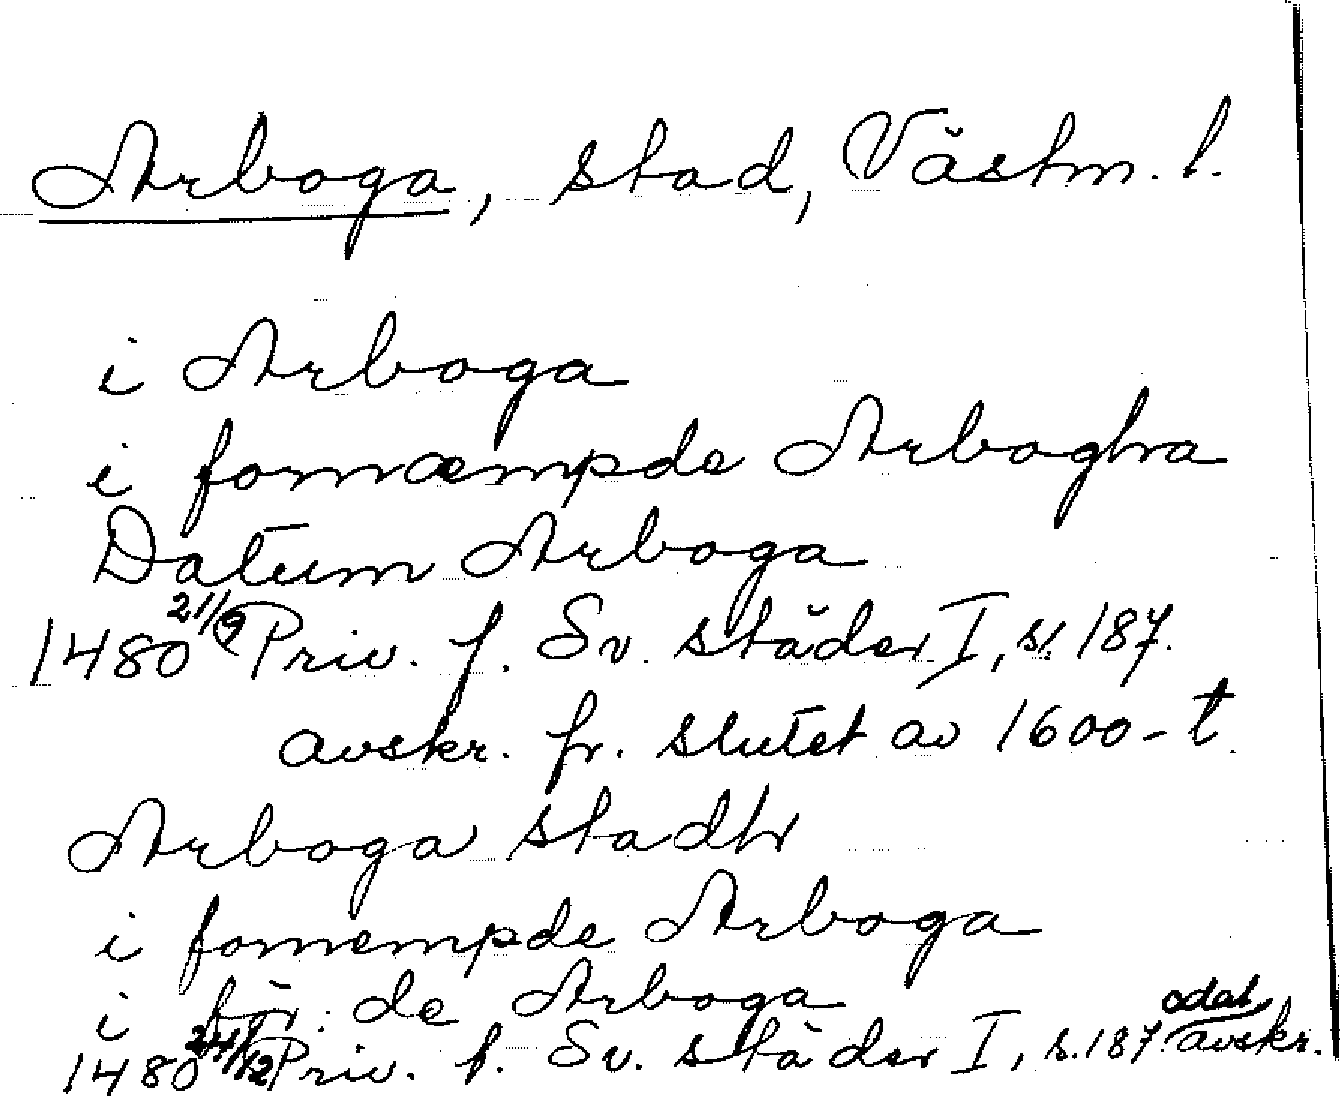 Arboga, stad, Västm. l.
i Arboga
i fornæmpde Arbogha
Datum Arboga
1480 21/9 Priv. f. Sv. städer I, s. 187.
avskr. fr. slutet av 1600-t.
Arboga stadh
i fornempde Arboga
i för:de Arboga
1480 24/12 Priv. f. Sv. städer I, s. 187. odat avskr.